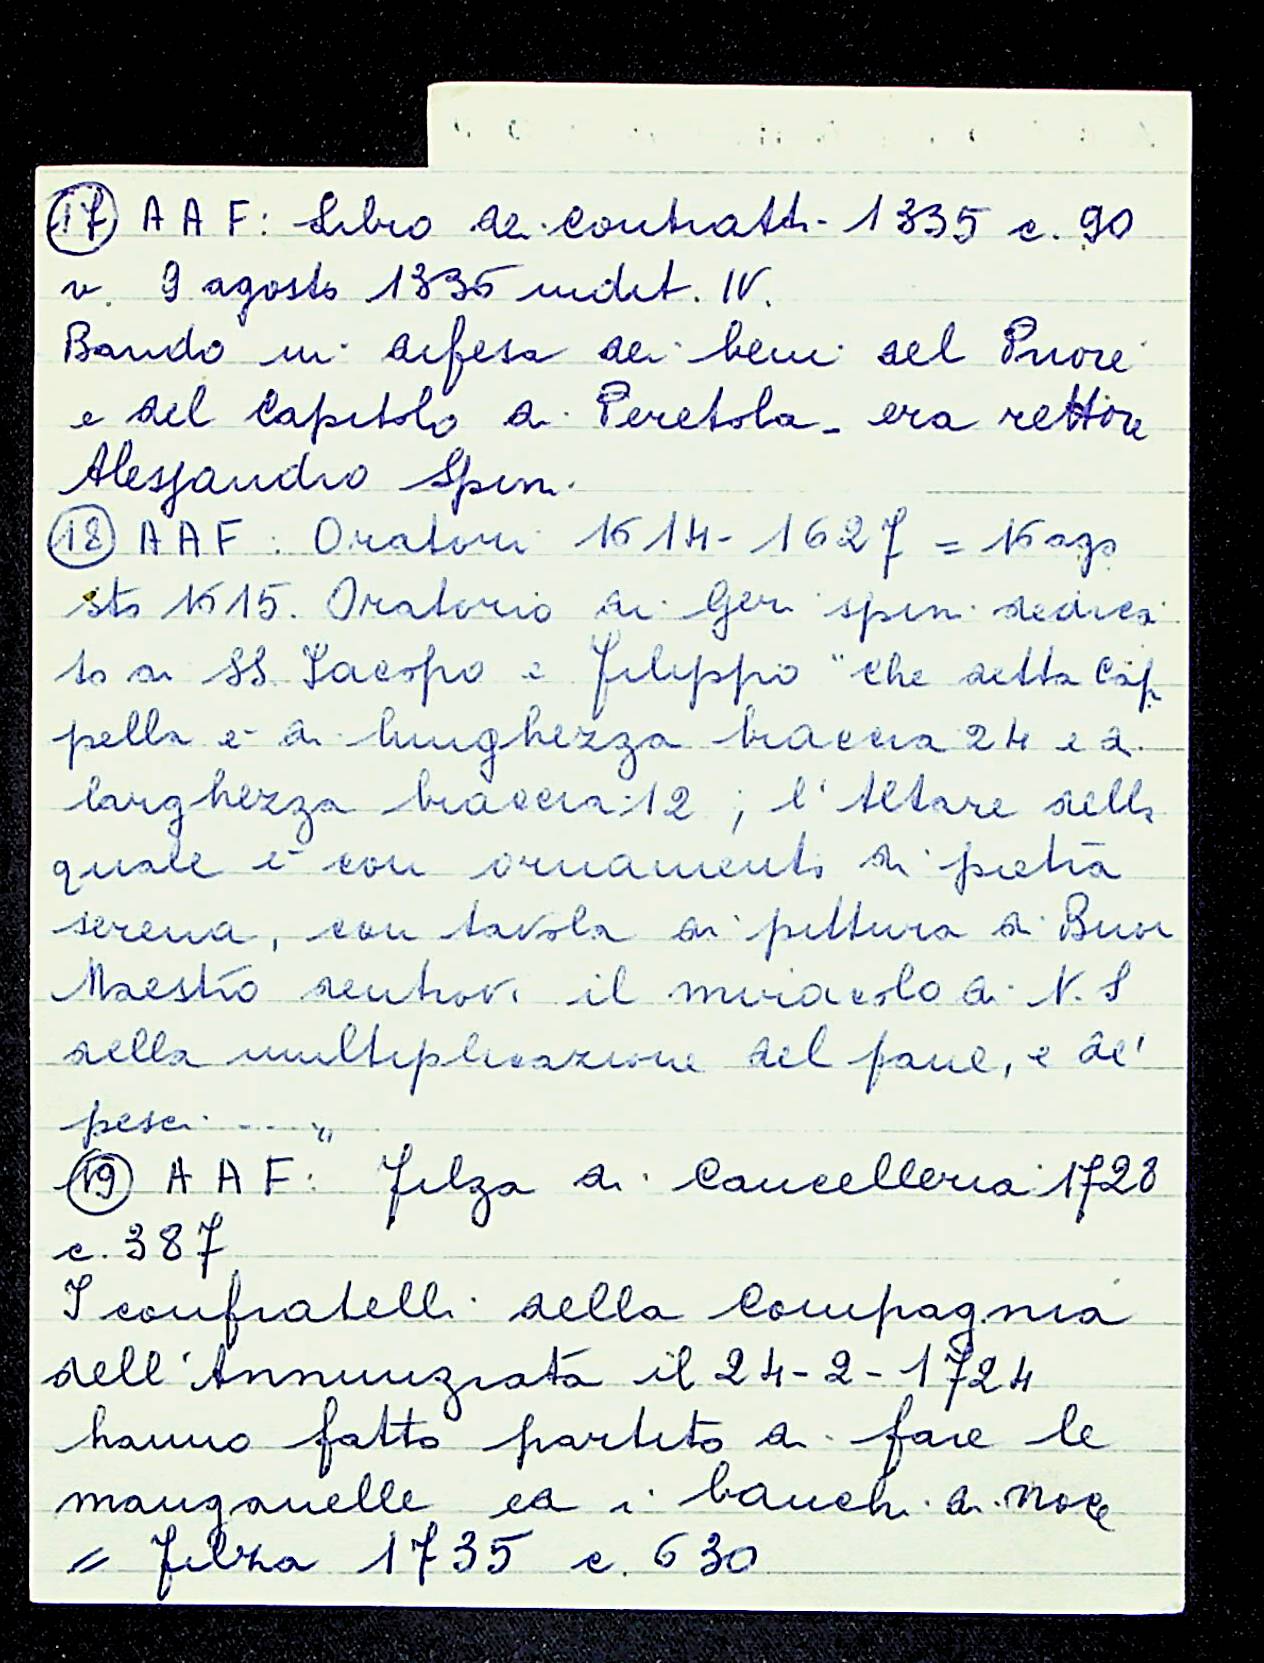 17 A A F: Libro dei contratti - 1335 c. 90
v. 9 agosto 1335 indit. IV.
Bando in difesa dei beni del Priore
e del Capitolo di Peretola - era rettore
Alessandro Spini.
18 A A F: Oratori 1614 - 1627 = 16 ago
sto 1615. Oratorio di Geri Spini dedica
to ai SS. Jacopo e Filippo "che detta Cap
pella è di lunghezza braccia 24 e di
larghezza braccia 12; l'Altare della
quale è con ornamento di pietra
serena, con tavola di pittura di Buon
Maestro dentrovi il miracolo di N. S
della multiplicazione del pane, e de'
pesci ...."
19 A A F: Filza di Cancelleria 1728
c. 387
I confratelli della Compagnia
dell'Annunziata il 24 - 2 - 1724
hanno fatto partito di fare le
manganelle ed i banchi di noce
= Filza 1735 c. 630